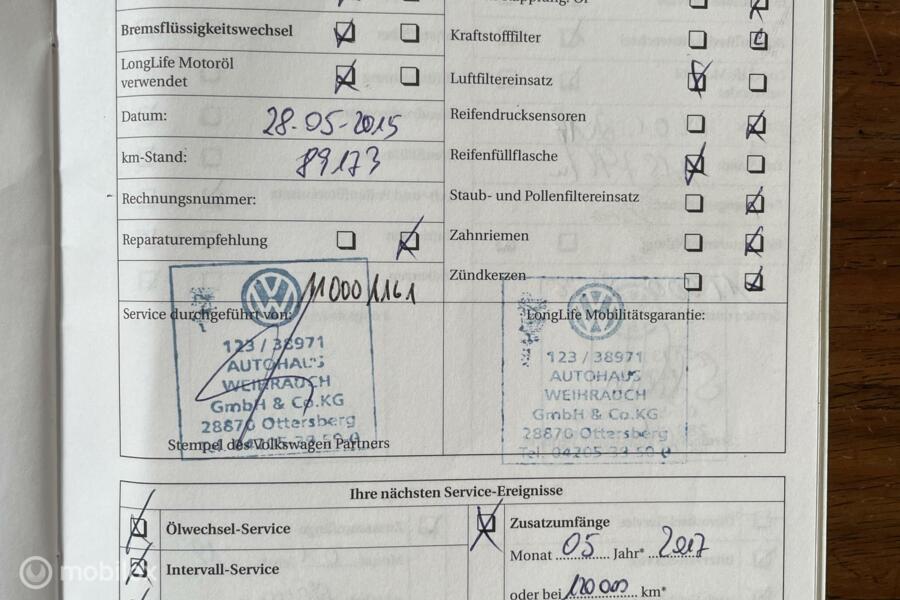 Bremsflüssigkeitswechsel
LongLife Motoröl
verwendet
Datum: 28-05-2015
km-Stand: 89173
Rechnungsnummer:
Reparaturempfehlung
11000 1161
Service durchgeführt von:
123 / 38971
AUTOHAUS
WEIHRAUCH
GmbH & Co.KG
28870 Ottersberg
Stempel des Volkswagen Partners
Kraftstofffilter
Luftfiltereinsatz
Reifendrucksensoren
Reifenfüllflasche
Staub- und Pollenfiltereinsatz
Zahnriemen
Zündkerzen
LongLife Mobilitätsgarantie:
123 / 38971
AUTOHAUS
WEIHRAUCH
GmbH & Co.KG
28870 Ottersberg
Tel. 04205-39 50 0
Ihre nächsten Service-Ereignisse
Ölwechsel-Service
Intervall-Service
Zusatzumfänge
Monat 05 Jahr* 2017
oder bei 120 000 km*